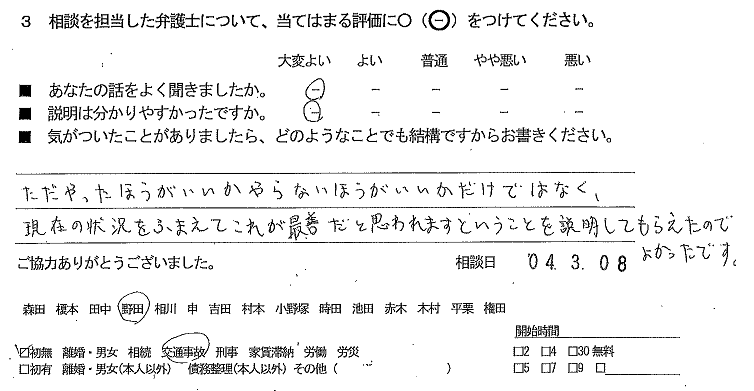 3 相談を担当した弁護士について、当てはまる評価に○（⊖）をつけてください。
大変よい よい 普通 やや悪い 悪い
■ あなたの話をよく聞きましたか。 － － － － －
■ 説明は分かりやすかったですか。 － － － － －
■ 気がついたことがありましたら、どのようなことでも結構ですからお書きください。
ただやったほうがいいかやらないほうがいいかだけではなく、
現在の状況をふまえてこれが最善だと思われますということを説明してもらえたので
よかったです。
ご協力ありがとうございました。 相談日 '04.3.08
森田 榎本 田中 野田 相川 申 吉田 村本 小野塚 時田 池田 赤木 木村 平栗 権田
開始時間
☑初無 離婚・男女 相続 交通事故 刑事 家賃滞納 労働 労災 □2 □4 □30 無料
□初有 離婚・男女(本人以外) 債務整理(本人以外) その他（ ） □5 □7 □9 □